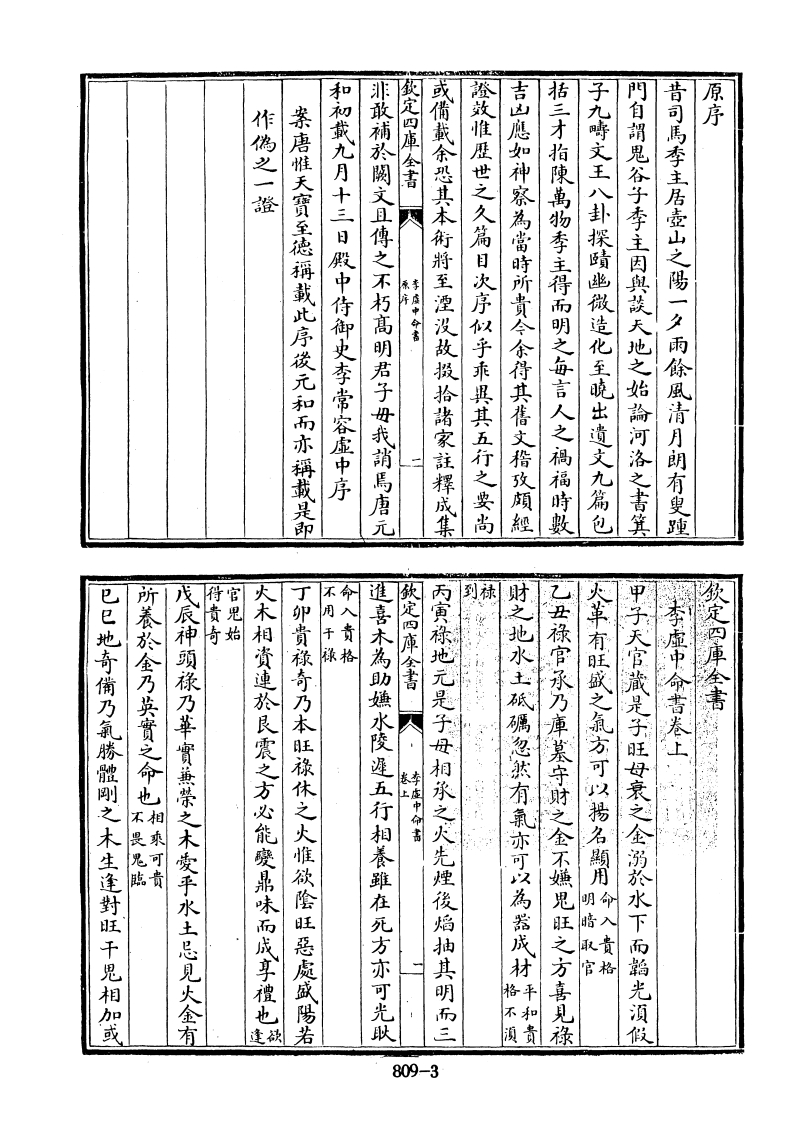 原序
昔司馬季主居壺山之陽一夕雨餘風清月朗有叟踵
門自謂鬼谷子季主因與談天地之始論河洛之書箕
子九疇文王八卦探賾幽微造化至曉出遺文九篇包
括三才指陳萬物季主得而明之每言人之禍福時數
吉凶應如神察為當時所貴今余得其舊文稽攷頗經
證效惟歴世之久篇目次序似乎乖異其五行之要尚
或備載余恐其本術將至湮没故掇拾諸家註釋成集
欽定四庫全書
李虚中命書
原序
二
非敢補於闕文且傳之不朽髙明君子毋我誚焉唐元
和初載九月十三日殿中侍御史李常容虚中序
案唐惟天寶至徳稱載此序後元和而亦稱載是即
作偽之一證
欽定四庫全書
李虚中命書卷上
甲子天官蔵是子旺母衰之金溺於水下而韜光湏假
火革有旺盛之氣方可以揚名顯用
命入貴格
明暗取官
乙丑禄官承乃庫墓守財之金不嫌鬼旺之方喜見禄
財之地水土砥礪忽然有氣亦可以為器成材
平和貴
格不湏
禄
到
丙寅禄地元是子母相承之火先煙後焰抽其明而三
欽定四庫全書
李虚中命書
卷上
一
進喜木為助嫌水陵遲五行相養雖在死方亦可光耿
命入貴格
不用干禄
丁卯貴禄奇乃本旺禄休之火惟欲陰旺惡處盛陽若
火木相資連於艮震之方必能變鼎味而成享禮也
欲
逢
官鬼始
得貴奇
戊辰神頭禄乃華實兼榮之木愛平水土忌見火金有
所養於金乃英實之命也
相乗可貴
不畏鬼臨
己巳地奇備乃氣勝體剛之木生逢對旺干鬼相加或
809-3